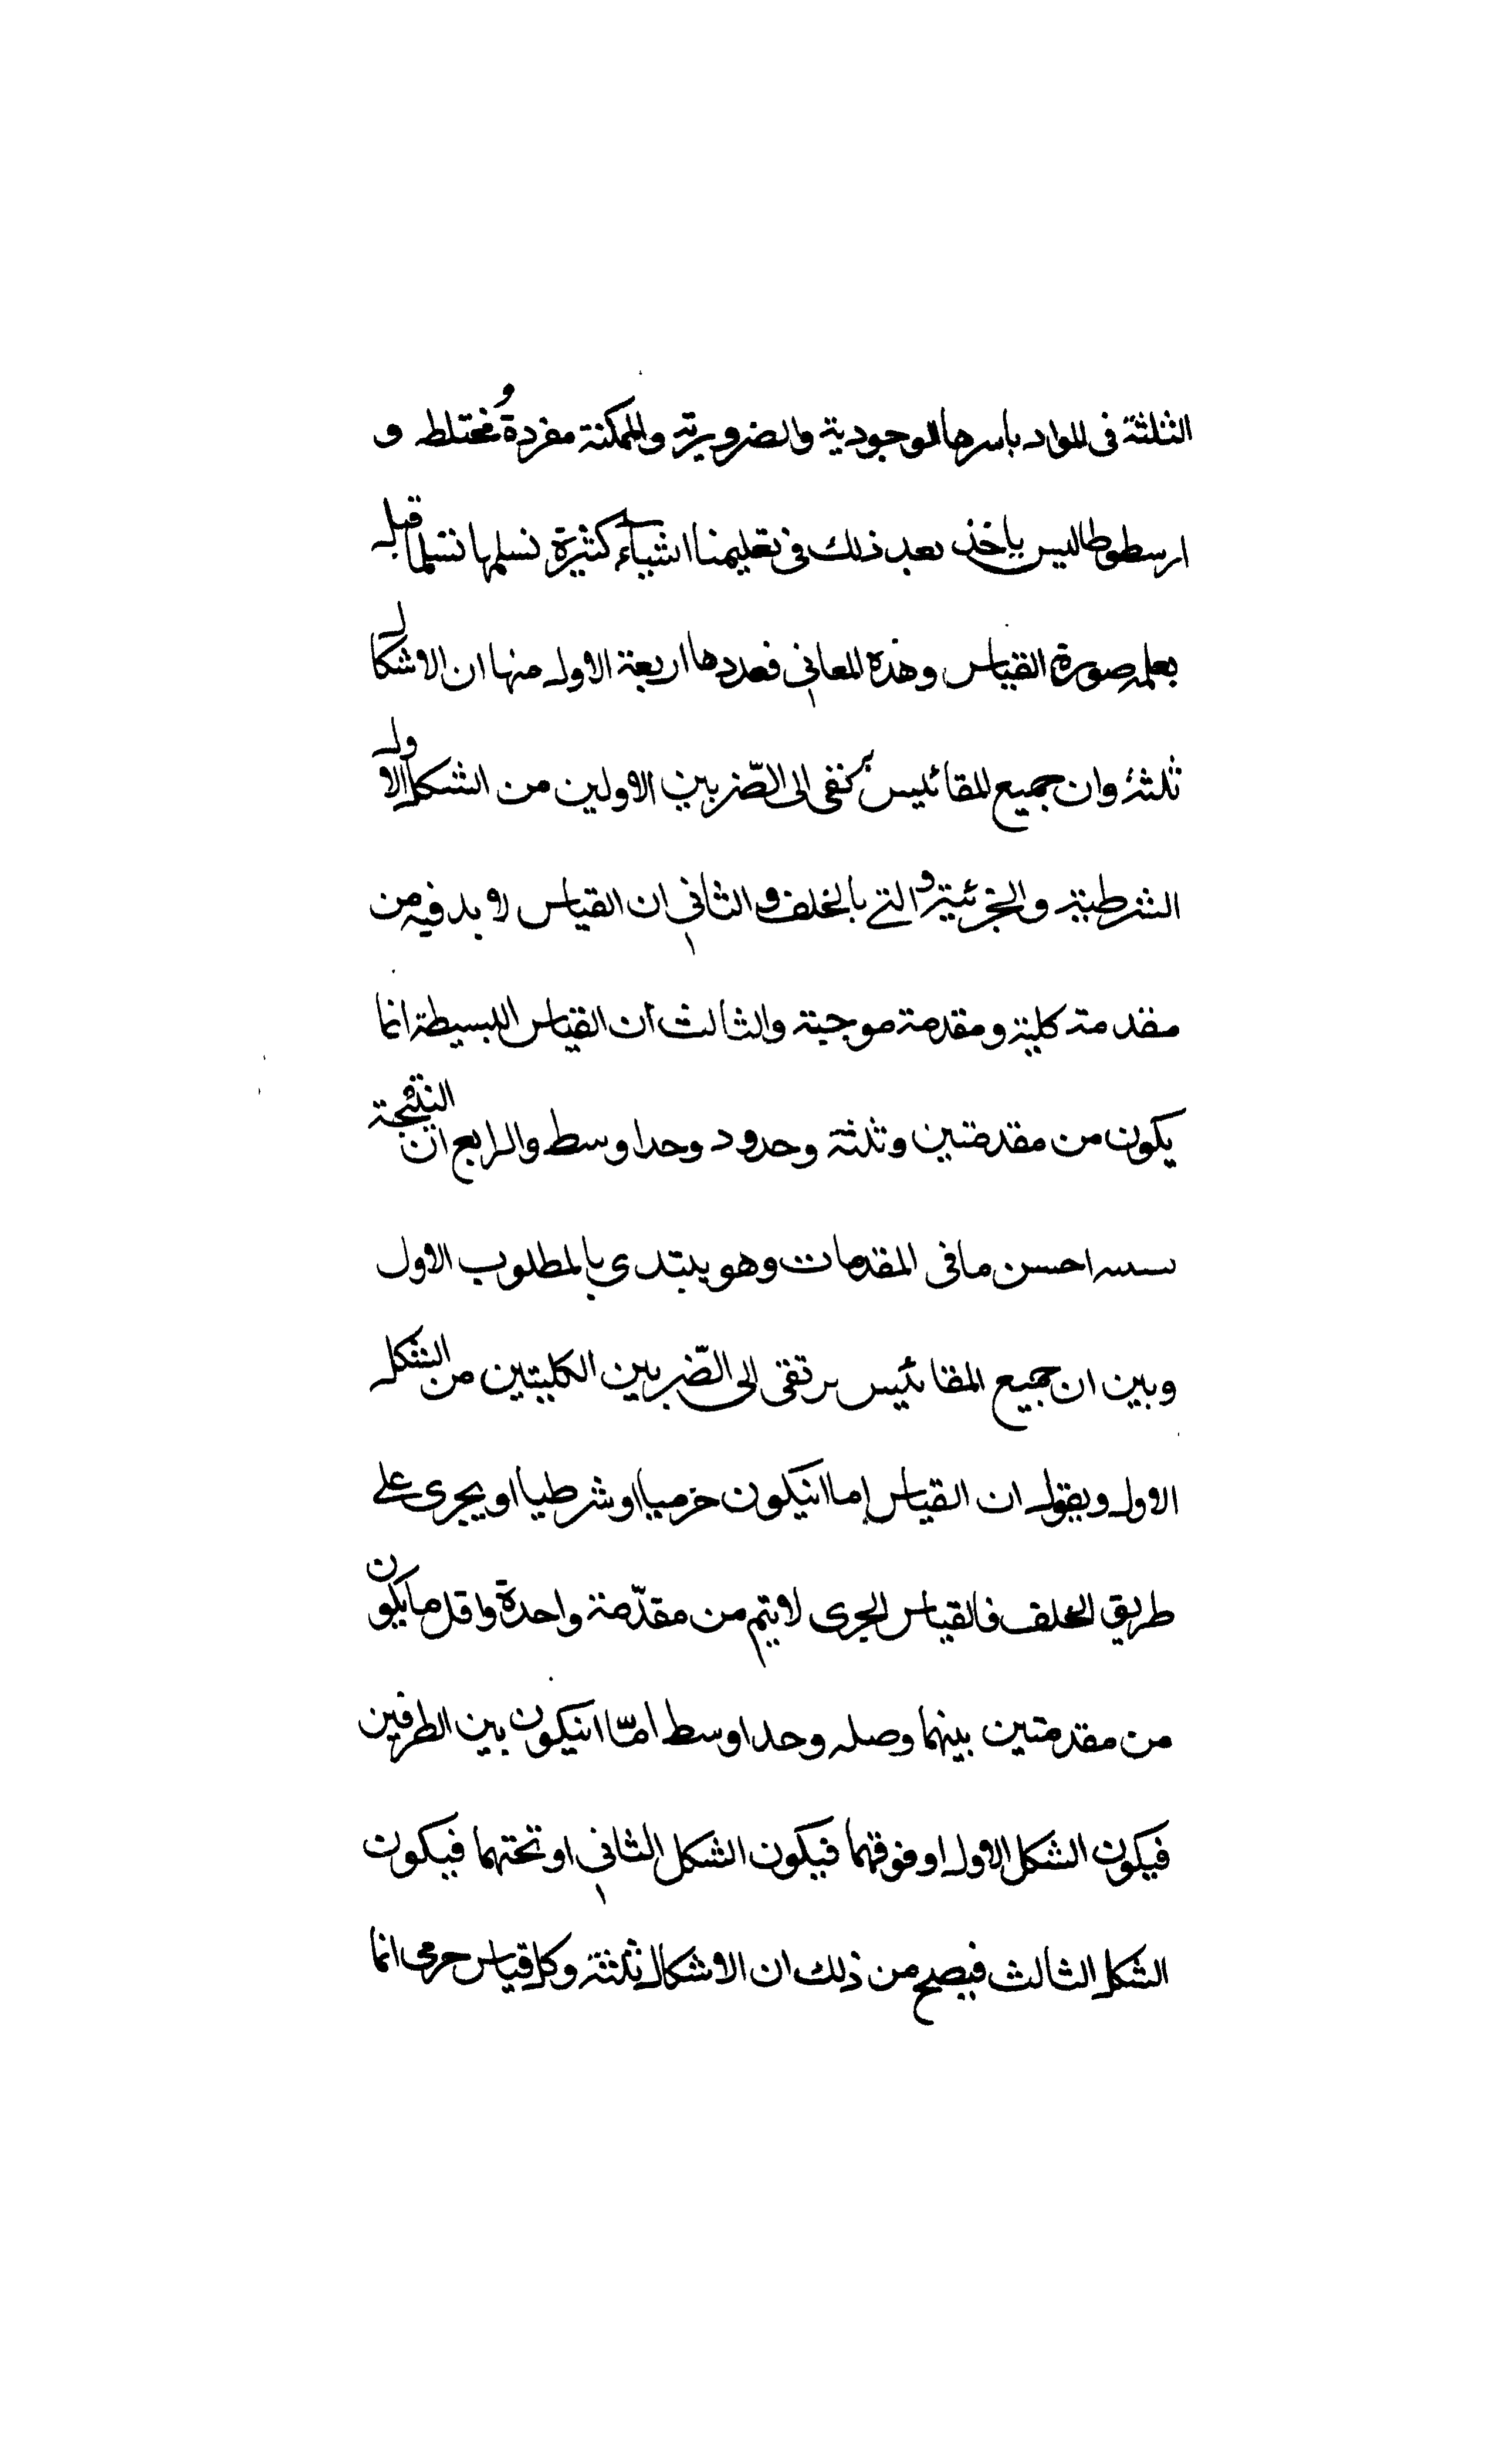 الثلثة فى المواد باسرها الوجودية والضرورية والممكنة مفردة و مختلط و
ارسطوطاليس ياخذ بعد ذلك فى تعليمنا اشياء كثيرة نسلمها نتسلما قبل
بعلم صورة القياس وهذه المعانى فعددها اربعة الاول منها ان الاشكال
ثلثة وان جميع المقائيس يرتقى الى الضربين الاولين من الشكل الاول
الشرطية والجزئية والتى بالخلف والثانى ان القياس لا بد فيه من
مقدمة كلية ومقدمة موجبة والثالث ان القياس البسيطة انما
يكون من مقدمتين وثلثة وحدود وحد اوسط والرابع ان النتيجة
احسن ما فى المقدمات وهو يبتدى بالمطلوب الاول
وبين ان جميع المقائيس يرتقى الى الضربين الكليتين من الشكل
الاول ويقول ان القياس اما انيكون خزميا او شرطيا او يجرى على
طريق الخلف فالقياس الجرى لا يتم من مقدّمة واحدة واقل ما يكون
من مقدمتين بينهما وصله وحد اوسط امّا انيكون بين الطرفين
فيكون الشكل الاول او فوقهما فيكون الشكل الثانى او تحتهما فيكون
الشكل الثالث فيصح من ذلك ان الاشكال ثلثة وكل قياس حرمى انما